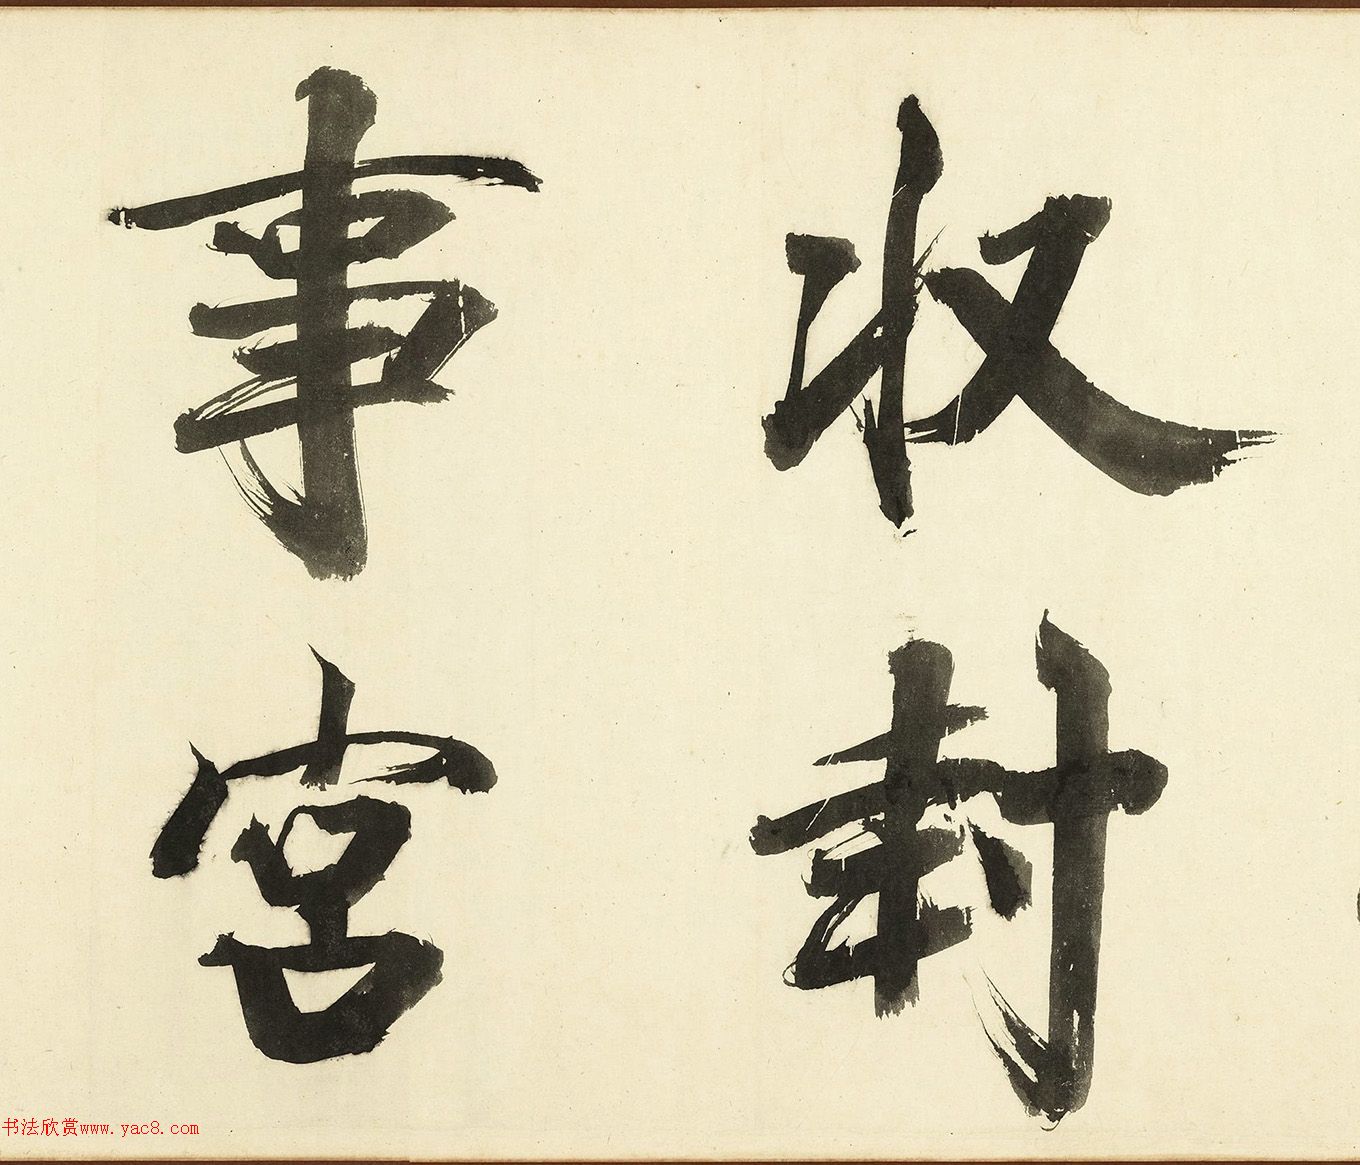 收封
事宮
书法欣赏www.yac8.com